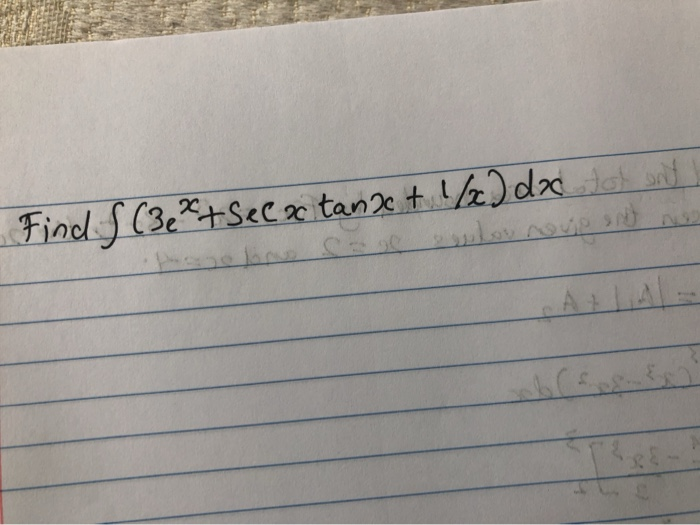 Find ∫ (3e^x + Sec x tanx + 1/x) dx